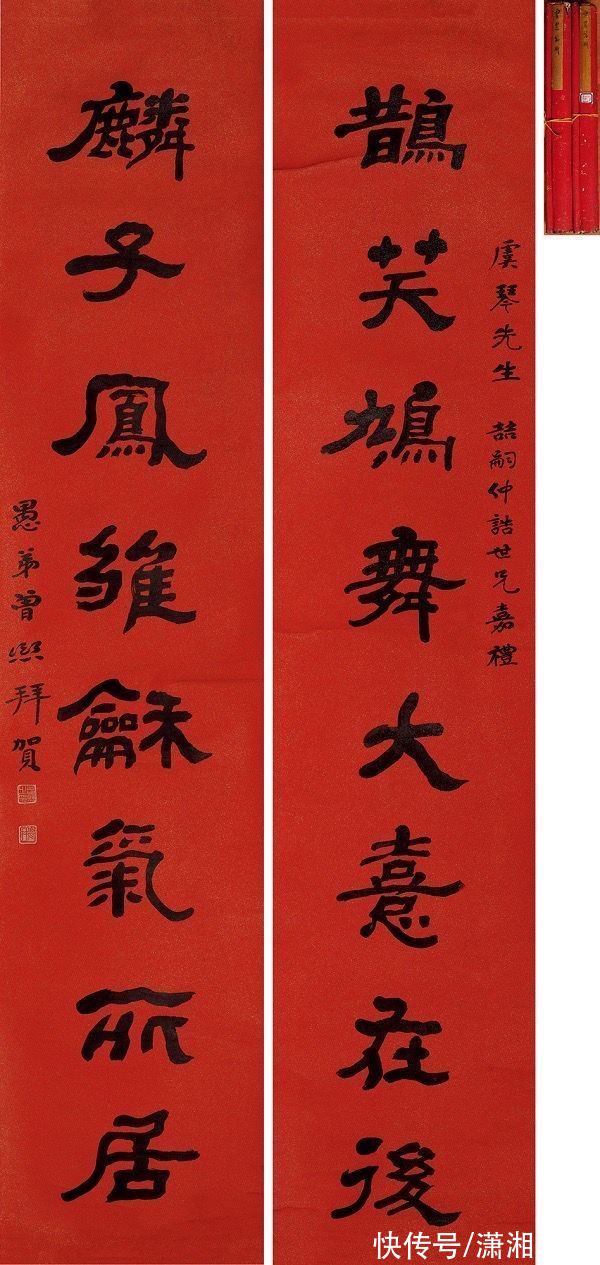 虞琴先生 喆嗣仲誥世兄嘉禮
鵲笑鳩舞大憙在後
麟子鳳雛龢氣所居
愚弟曾熙拜賀
快传号/潇湘